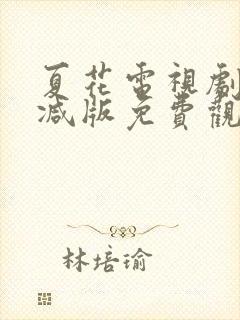 夏花電視劇
減版免費觀
林培瑜